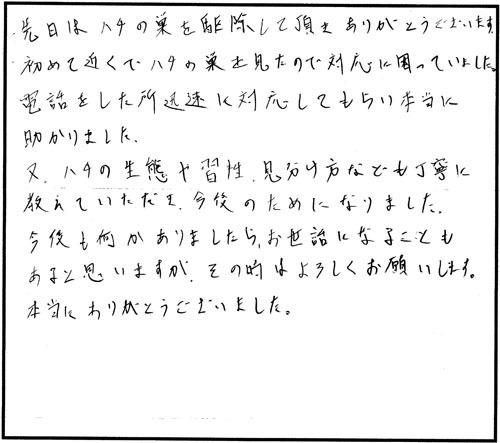 先日はハチの巣を駆除して頂きありがとうございます。
初めて近くでハチの巣を見たので対応に困っていました。
電話をした所迅速に対応してもらい本当に
助かりました。
又、ハチの生態や習性、見分け方なども丁寧に
教えていただき、今後のためになりました。
今後も何かありましたら、お世話になることも
あると思いますが、その時はよろしくお願いします。
本当にありがとうございました。